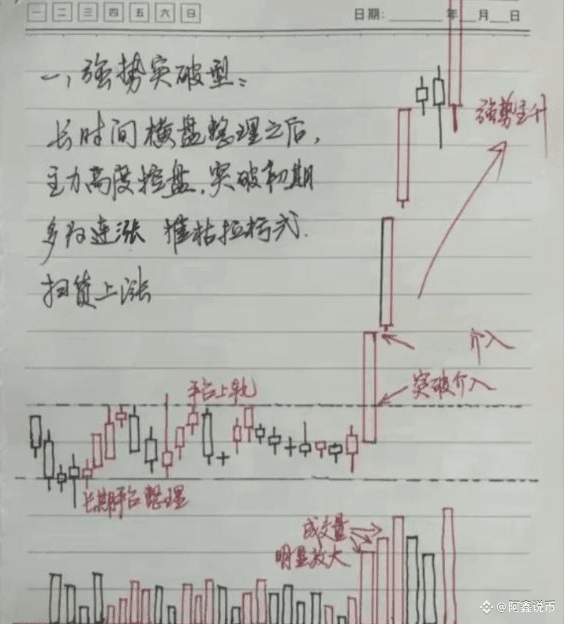 一 二 三 四 五 六 日
日期: 年 月 日
一、强势突破型:
长时间横盘整理之后,
主力高度控盘,突破初期
多为连涨 摧枯拉朽式.
扫货上涨
强势主升
介入
突破介入
平台上轨
长期平台整理
成交量
明显放大
阿鑫说币